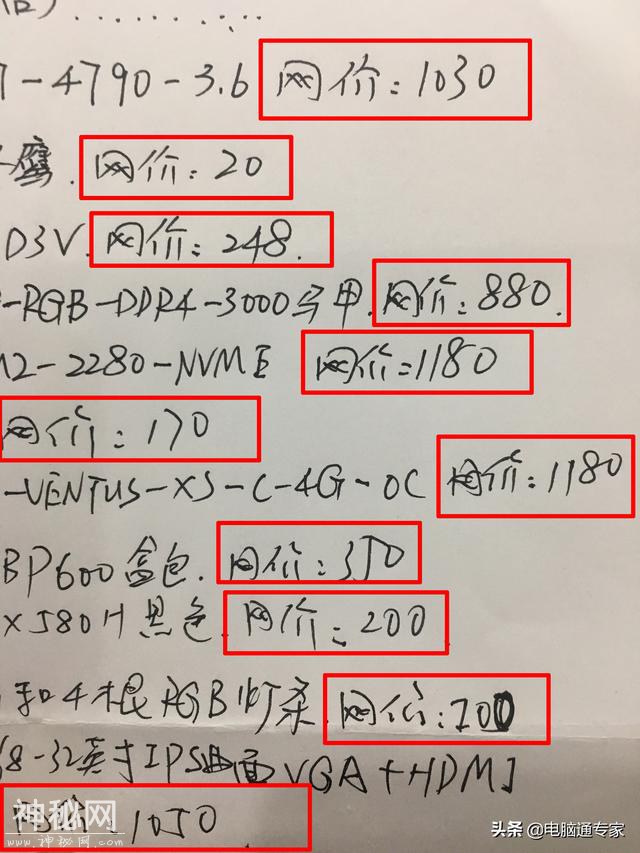 …………
7-4790-3.6 网价:1030
鹰. 网价:20
D3V. 网价:248.
-RGB-DDR4-3000马甲. 网价:880.
M2-2280-NVME 网价:1180
网价:170
-VENTUS-XS-C-4G-OC 网价:1180
BP600盒包. 网价:350
X580H黑色. 网价:200
和4根RGB灯条. 网价:700
68-32英寸IPS曲面VGA+HDMI
网价 1050
神秘网
www.神秘网.com
头条 @电脑通专家